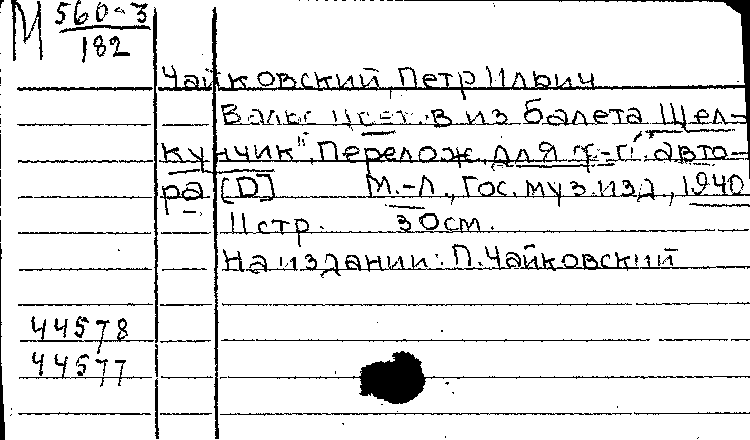 М 560-3
182
Чайковский, Петр Ильич
Вальс цветов из балета Щел-
кунчик". Перелож. для ф-п. авто-
ра [D] М.-Л., Гос. муз. изд., 1940
11 стр. 30см.
На издании: П. Чайковский
44578
44577